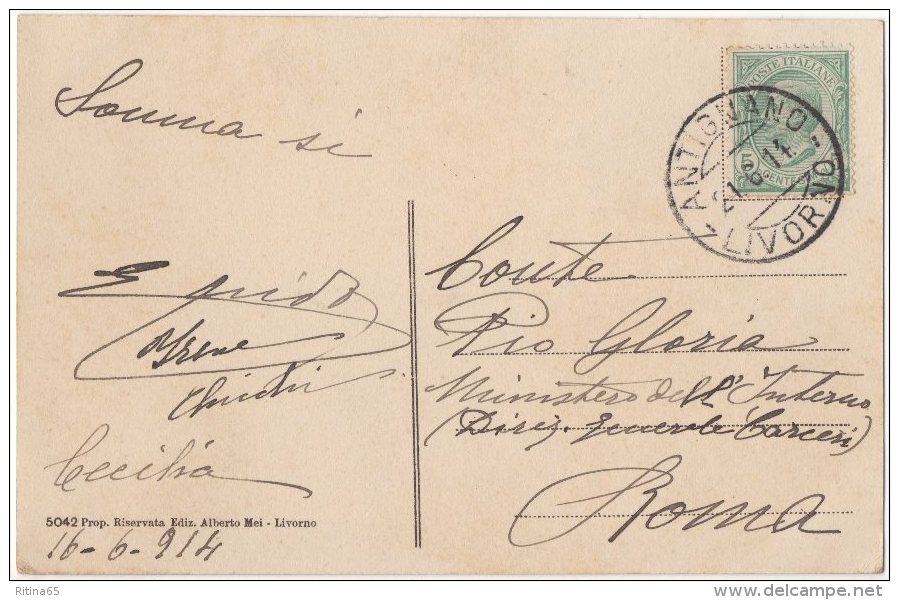 POSTE ITALIANE
5
ANTIGNANO
LIVORNO
Somma si
Guido
Irene
Cecilia
5042 Prop. Riservata Ediz. Alberto Mei - Livorno
16-6-914
Conte
Pio Gloria
Ministero dell'Interno
(Direz. Generale Carceri)
Roma
Ritina65
www.delcampe.net